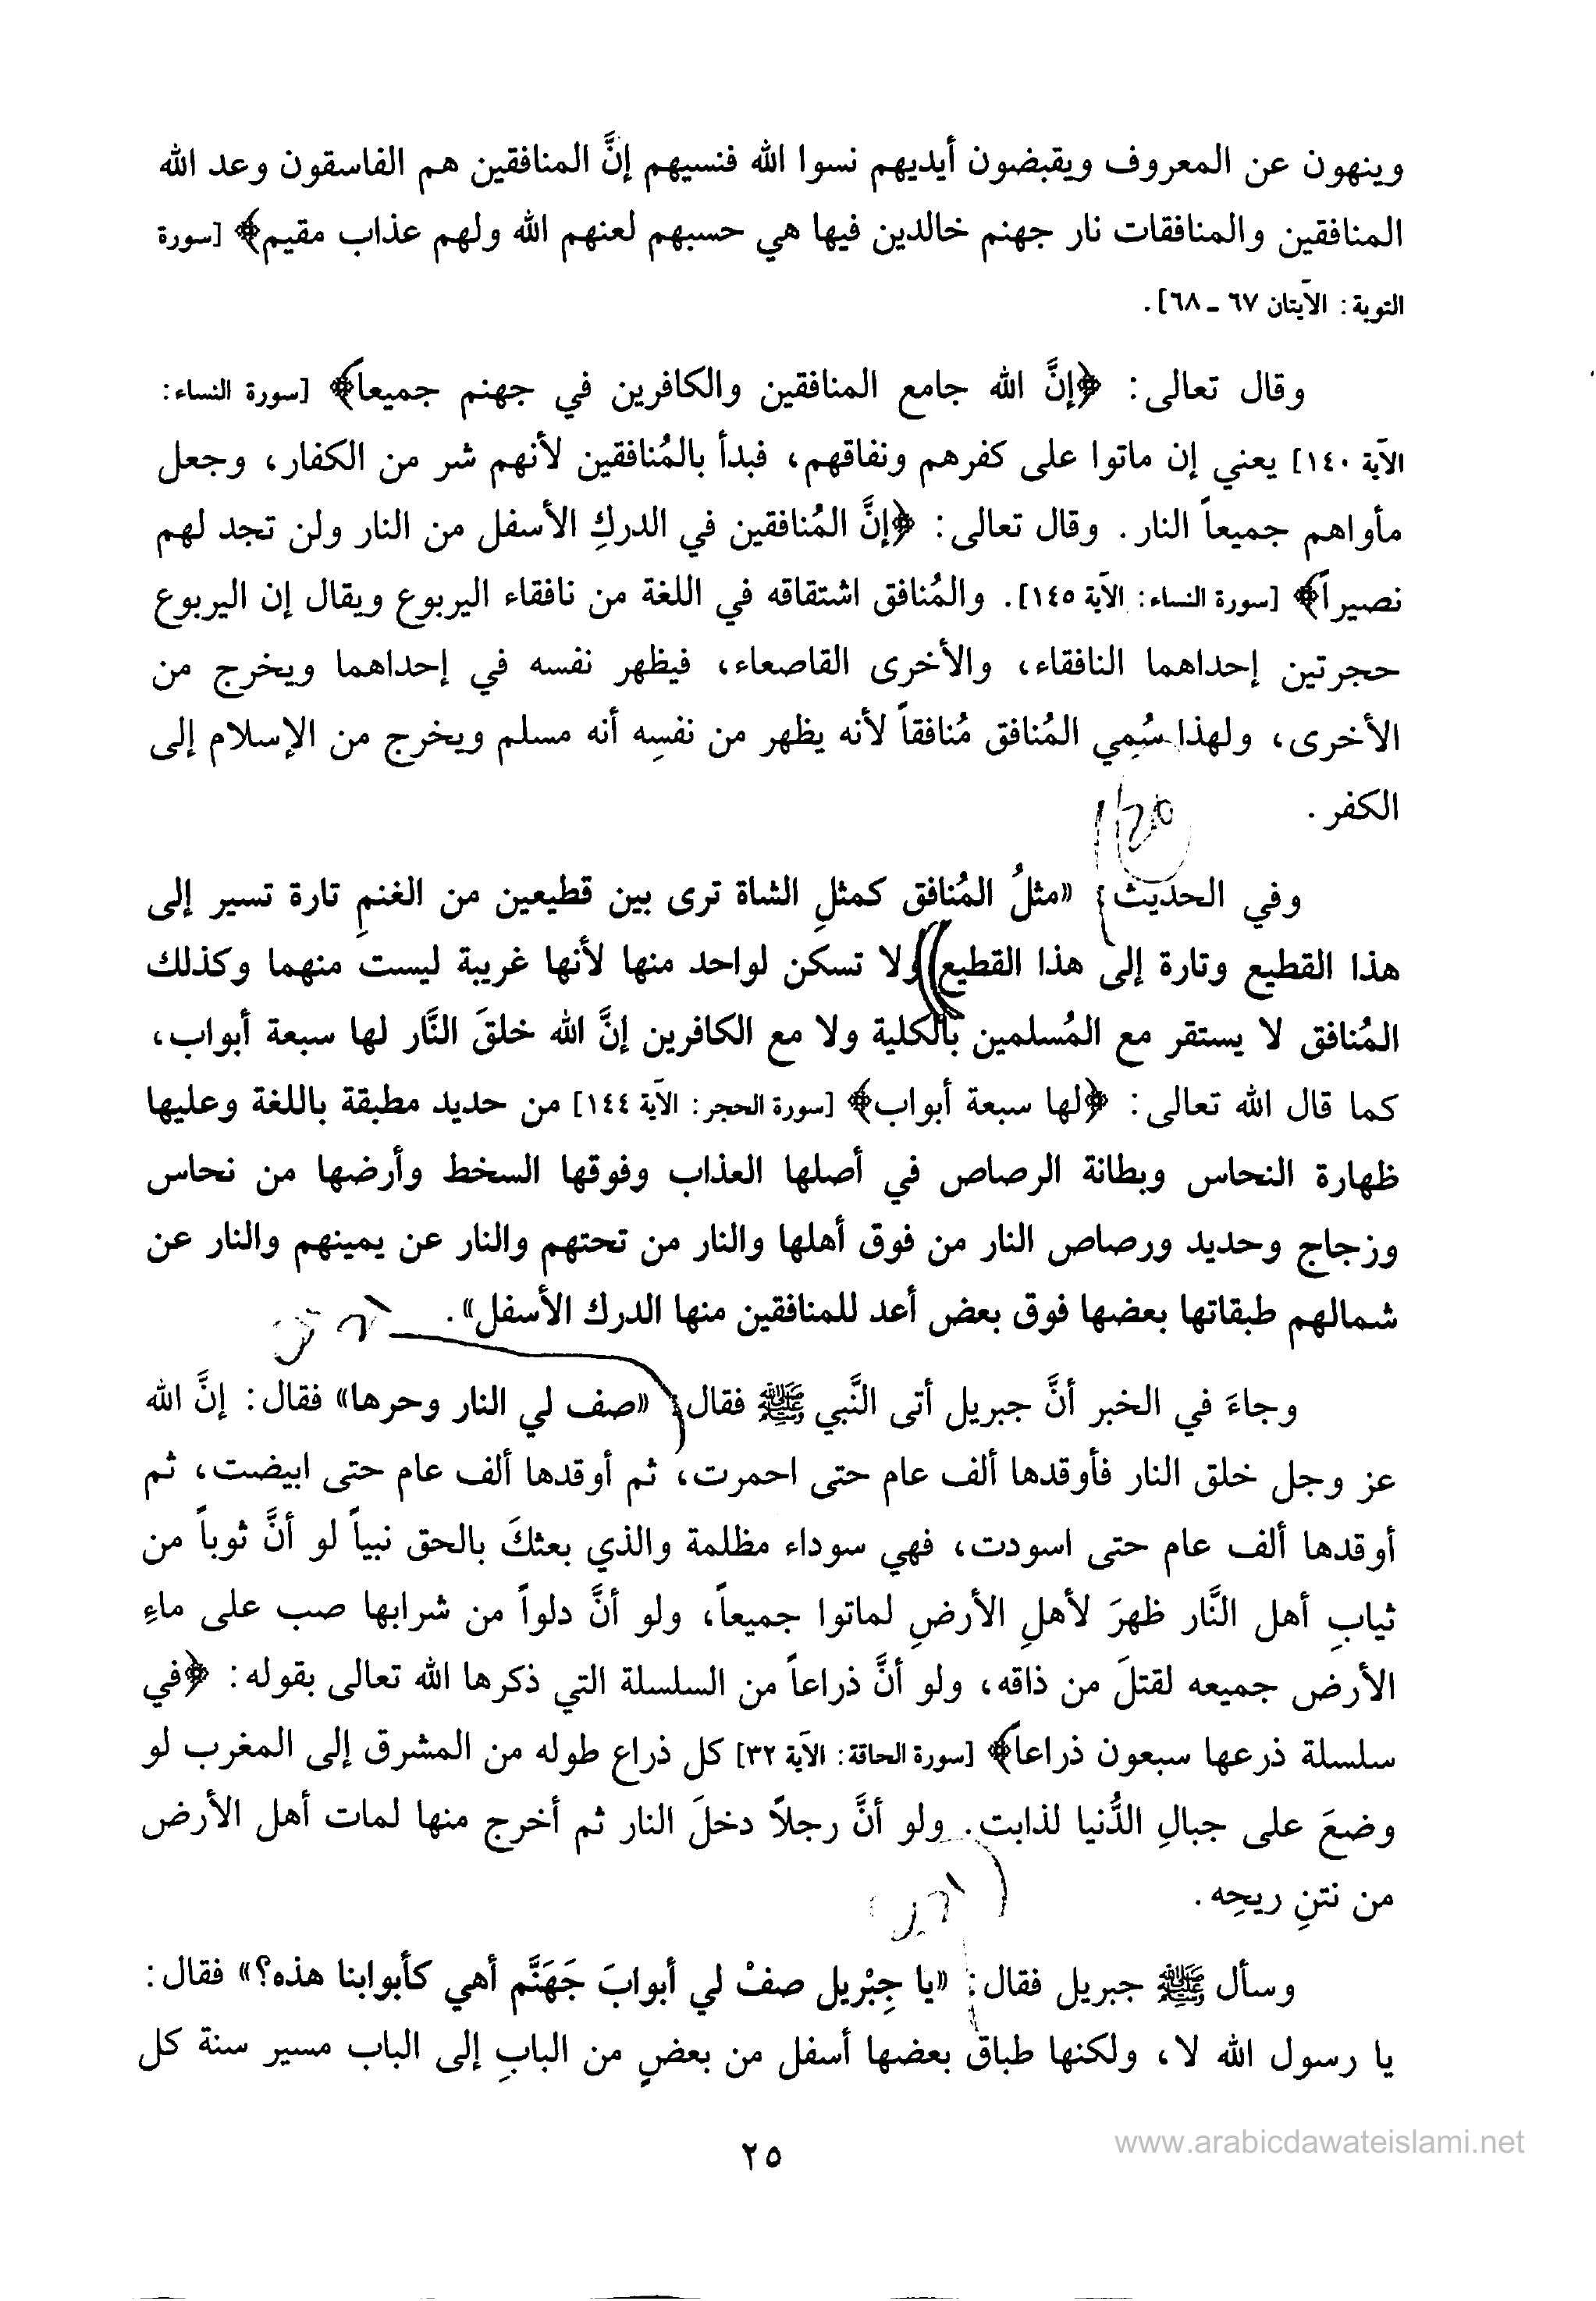 وينهون عن المعروف ويقبضون أيديهم نسوا الله فنسيهم إنَّ المنافقين هم الفاسقون وعد الله
المنافقين والمنافقات نار جهنم خالدين فيها هي حسبهم لعنهم الله ولهم عذاب مقيم﴾ [سورة
التوبة: الآيتان ٦٧ ـ ٦٨].
وقال تعالى: ﴿إنَّ الله جامع المنافقين والكافرين في جهنم جميعاً﴾ [سورة النساء:
الآية ١٤٠] يعني إن ماتوا على كفرهم ونفاقهم، فبدأ بالمُنافقين لأنهم شر من الكفار، وجعل
مأواهم جميعاً النار. وقال تعالى: ﴿إنَّ المُنافقين في الدركِ الأسفل من النار ولن تجد لهم
نصيراً﴾ [سورة النساء: الآية ١٤٥]. والمُنافق اشتقاقه في اللغة من نافقاء اليربوع ويقال إن اليربوع
حجرتين إحداهما النافقاء، والأخرى القاصعاء، فيظهر نفسه في إحداهما ويخرج من
الأخرى، ولهذا سُمِي المُنافق مُنافقاً لأنه يظهر من نفسِه أنه مسلم ويخرج من الإسلام إلى
الكفر.
وفي الحديث: «مثلُ المُنافق كمثلِ الشاة ترى بين قطيعين من الغنمِ تارة تسير إلى
هذا القطيع وتارة إلى هذا القطيع ولا تسكن لواحد منها لأنها غريبة ليست منهما وكذلك
المُنافق لا يستقر مع المُسلمين بالكلية ولا مع الكافرين إنَّ الله خلقَ النَّار لها سبعة أبواب،
كما قال الله تعالى: ﴿لها سبعة أبواب﴾ [سورة الحجر: الآية ١٤٤] من حديد مطبقة باللغة وعليها
ظهارة النحاس وبطانة الرصاص في أصلها العذاب وفوقها السخط وأرضها من نحاس
وزجاج وحديد ورصاص النار من فوق أهلها والنار من تحتهم والنار عن يمينهم والنار عن
شمالهم طبقاتها بعضها فوق بعض أعد للمنافقين منها الدرك الأسفل».
وجاءَ في الخبر أنَّ جبريل أتى النَّبي ﷺ فقال: «صف لي النار وحرها» فقال: إنَّ الله
عز وجل خلق النار فأوقدها ألف عام حتى احمرت، ثم أوقدها ألف عام حتى ابيضت، ثم
أوقدها ألف عام حتى اسودت، فهي سوداء مظلمة والذي بعثكَ بالحق نبياً لو أنَّ ثوباً من
ثيابِ أهل النَّار ظهرَ لأهلِ الأرضِ لماتوا جميعاً، ولو أنَّ دلواً من شرابها صب على ماءِ
الأرض جميعه لقتلَ من ذاقه، ولو أنَّ ذراعاً من السلسلة التي ذكرها الله تعالى بقوله: ﴿في
سلسلة ذرعها سبعون ذراعاً﴾ [سورة الحاقة: الآية ٣٢] كل ذراع طوله من المشرق إلى المغرب لو
وضعَ على جبالِ الدُّنيا لذابت. ولو أنَّ رجلاً دخلَ النار ثم أخرج منها لمات أهل الأرض
من نتنِ ريحِه.
وسأل ﷺ جبريل فقال: «يا جِبْريل صفْ لي أبوابَ جَهَنَّم أهي كأبوابنا هذه؟» فقال:
يا رسول الله لا، ولكنها طباق بعضها أسفل من بعضٍ من البابِ إلى الباب مسير سنة كل
٢٥
www.arabicdawateislami.net